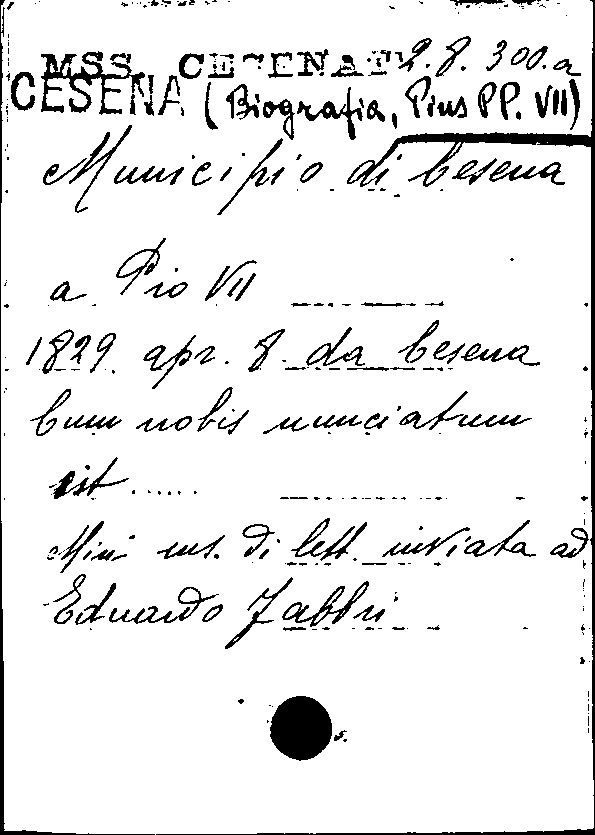 MSS. CESENATI 2.8.300.a
CESENA (Biografia, Pius PP. VII)
Municipio di Cesena
a Pio VII
1829 apr. 8. da Cesena
Cum nobis nunciatum
est ......
Min. ms. di lett. inviata ad
Eduardo Fabbri